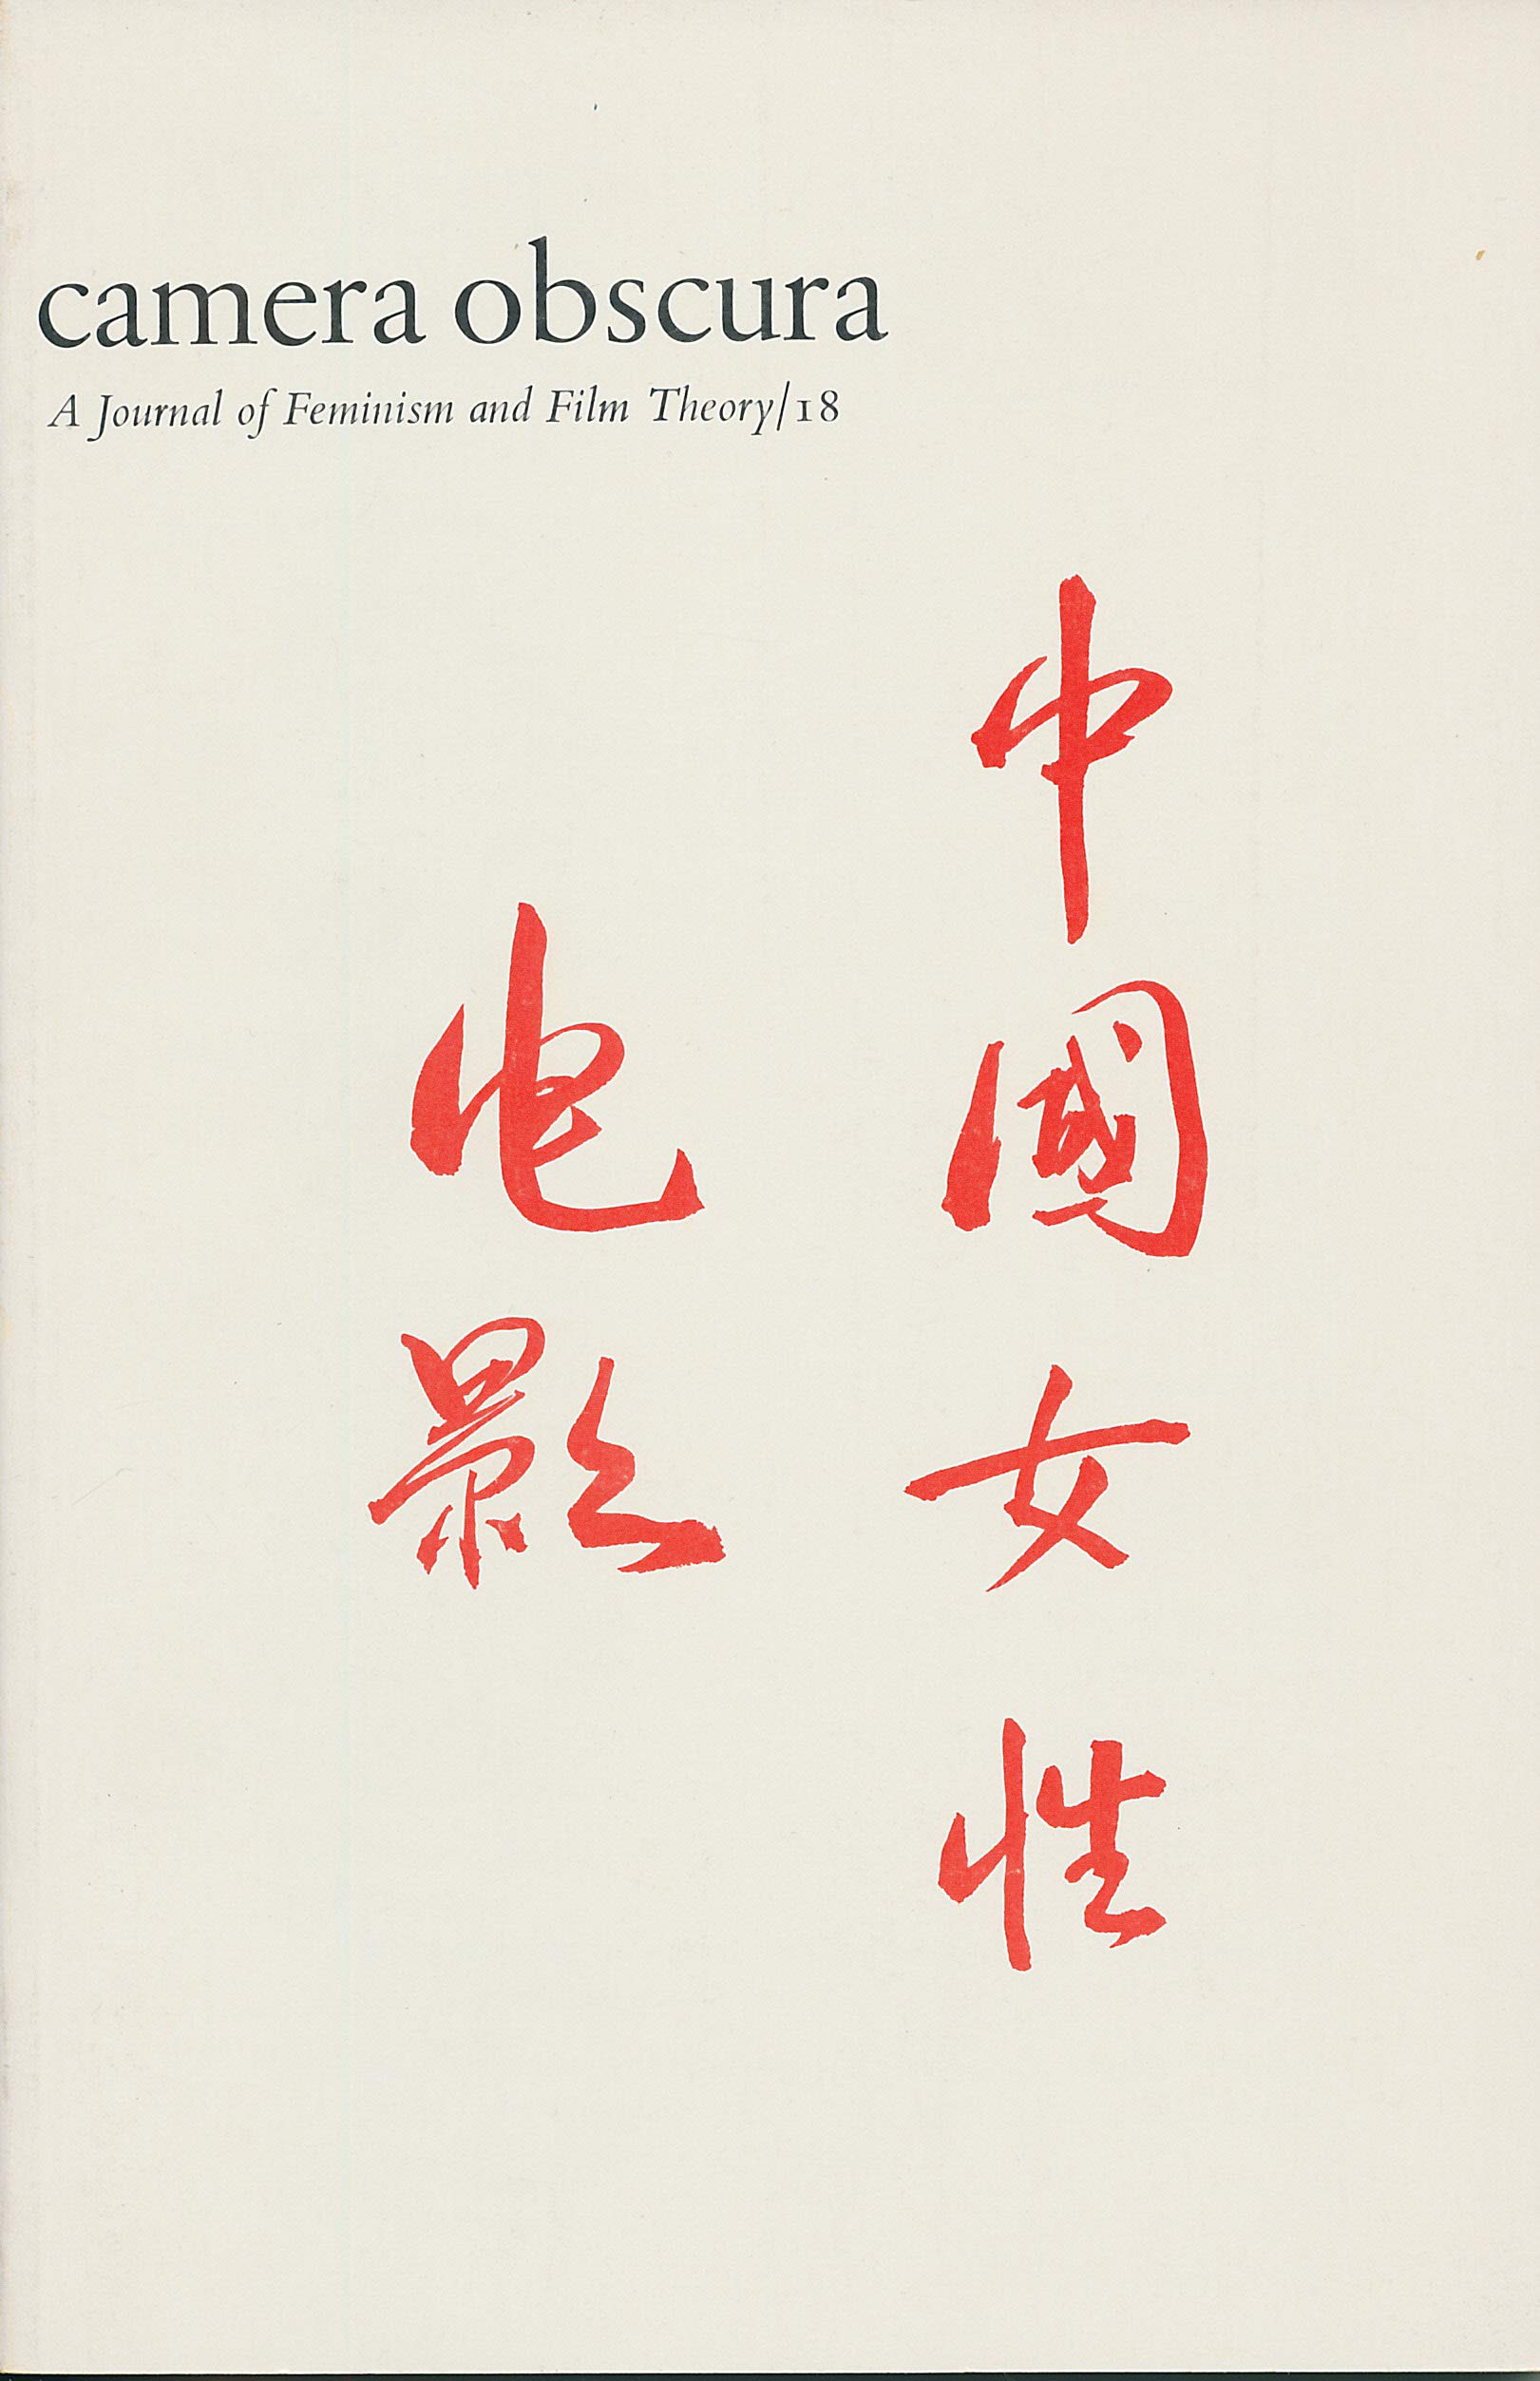 camera obscura
A Journal of Feminism and Film Theory/18
中國女性
电影